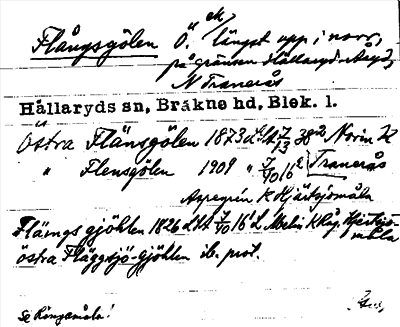 Flångsgölen Ö. ek,
längst upp i norr,
på gränsen Hällaryd-Åryd,
N Tranerås
Hällaryds sn, Bräkne hd, Blek. l.
Östra Flänsgölen 1873 7/13 38² Norin K
" Flensgölen 1909 " 7/10 16² Tranerås
Aspegrin K Hjärtsjömåla
Flängs gjöhlen 1826 7/10 16² L. Melin K
östra Fläggsjö-gjöhlen ib. prot.
Se Långemåla!